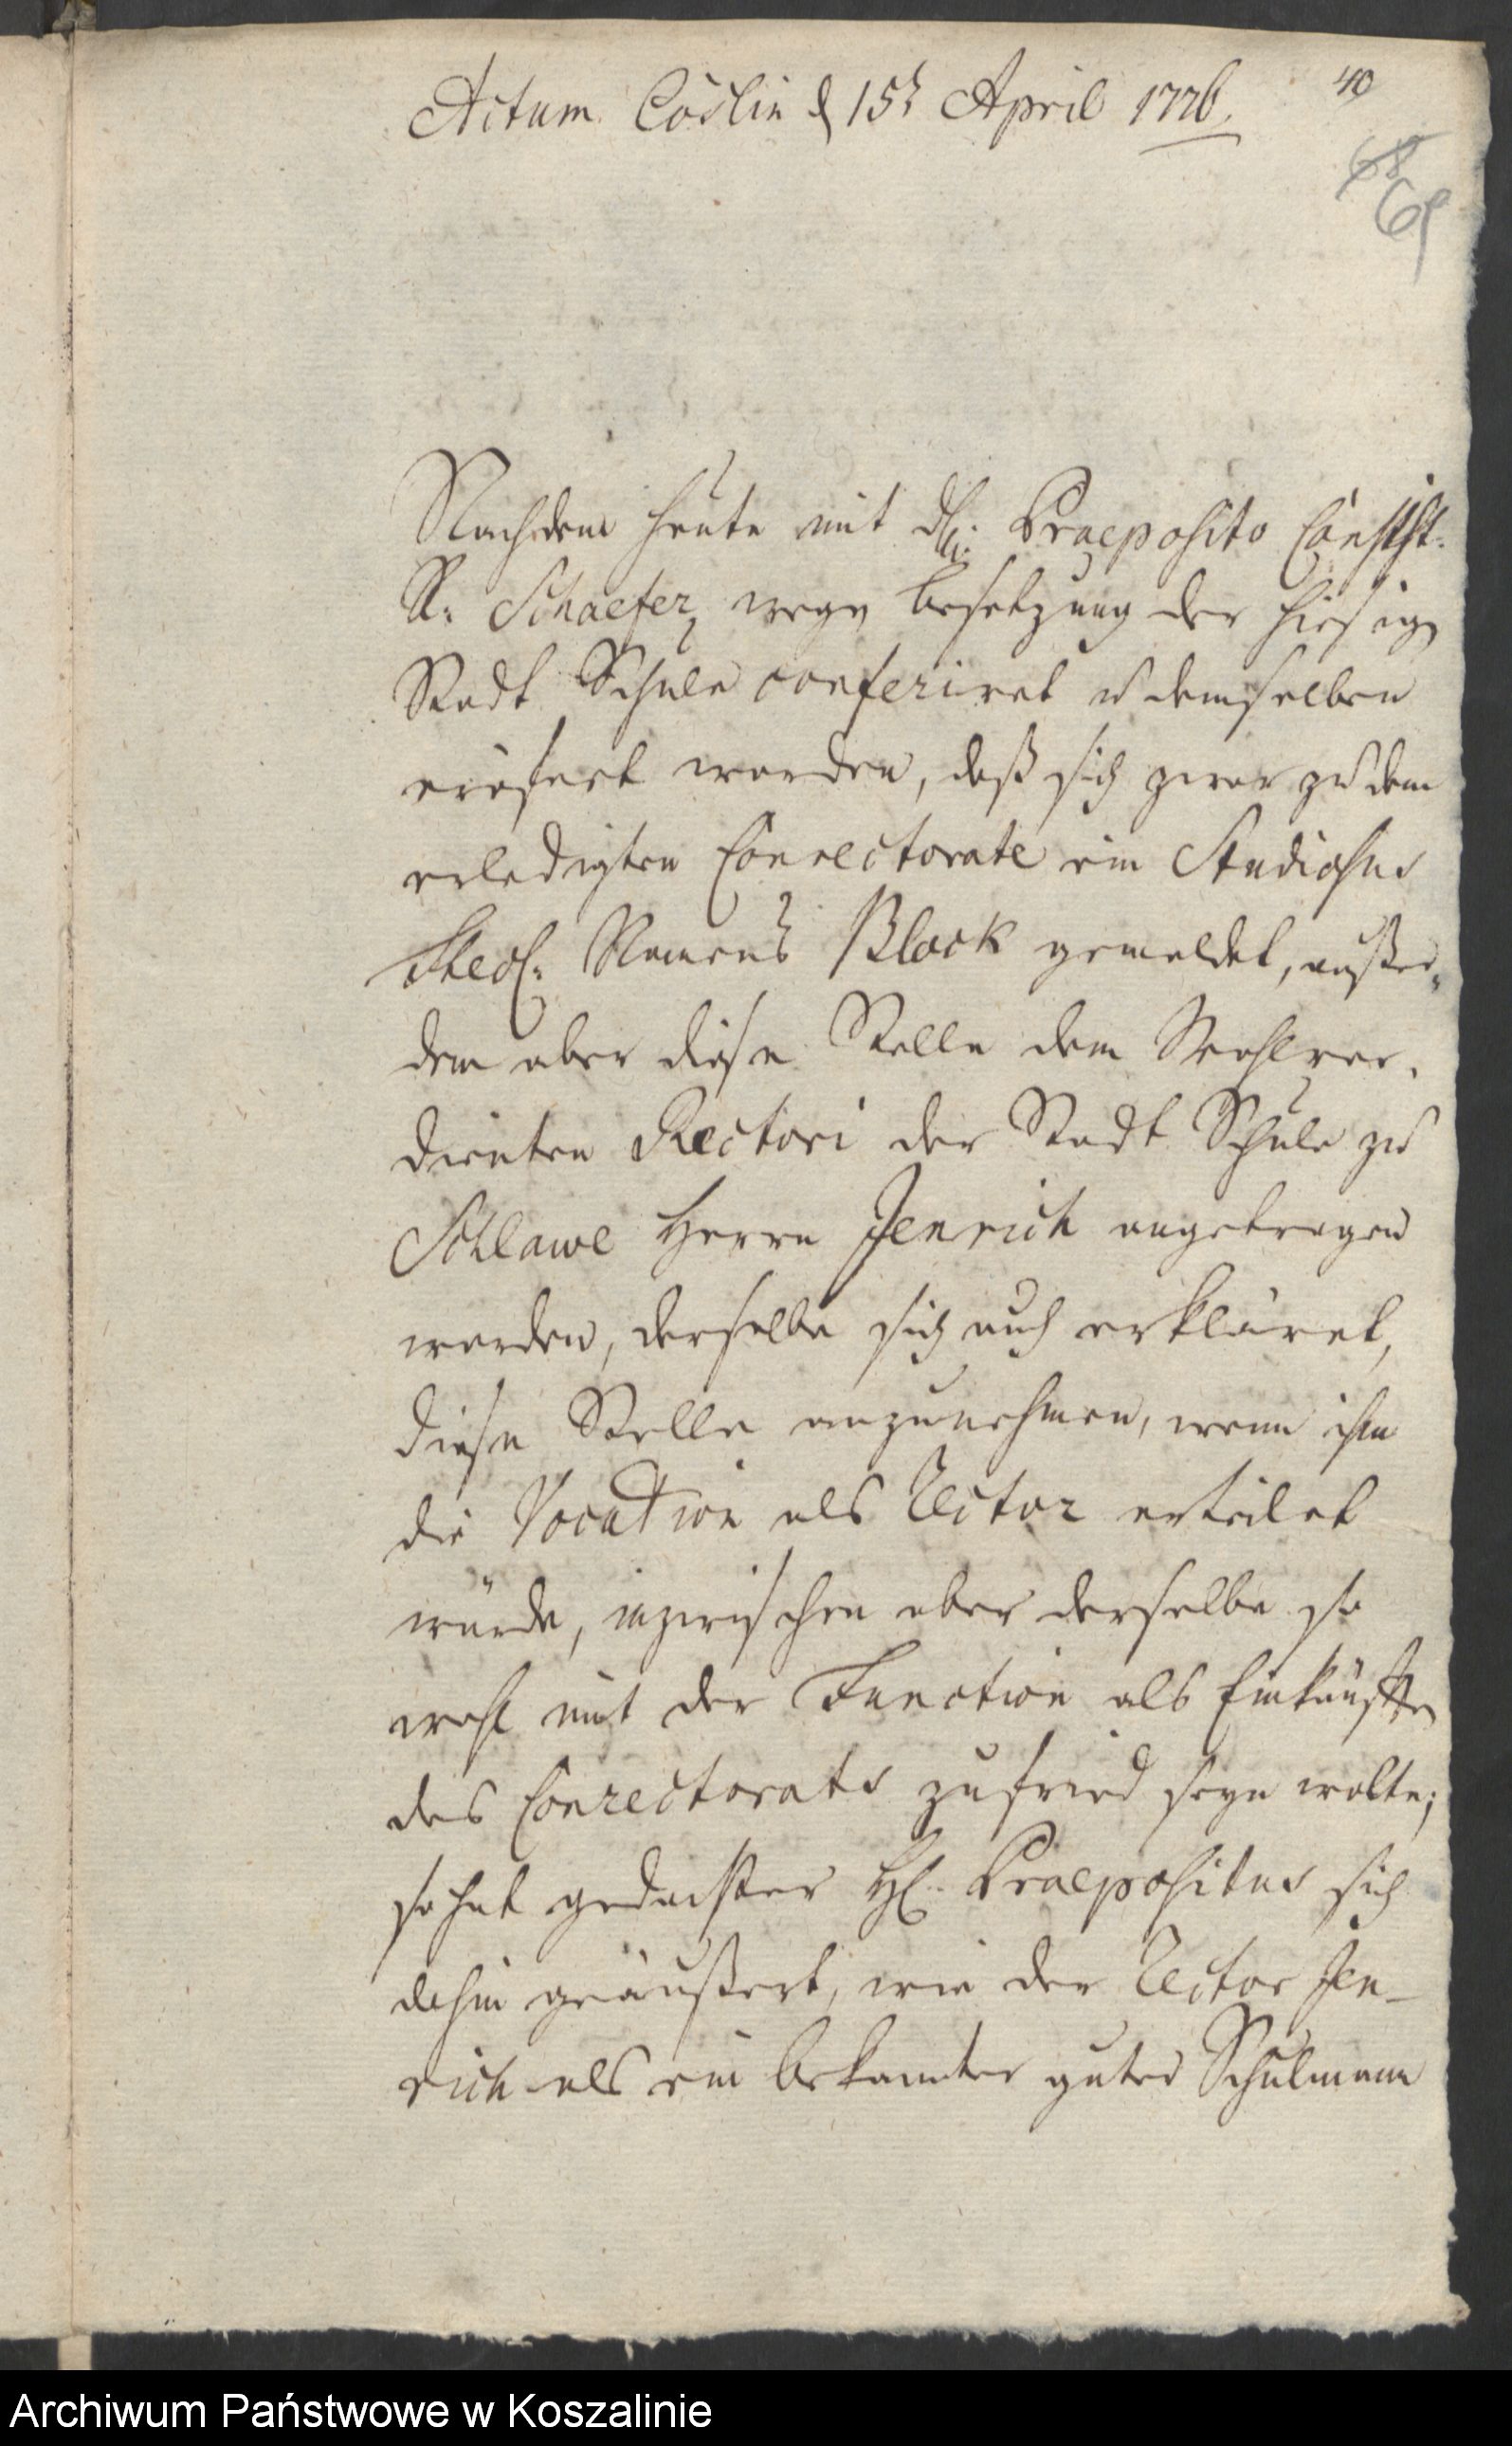 Actum Cöslin d 15t April 1776.
40
68
69
Nachdem heute mit dH. Praeposito Consist.
R. Schaefer wegen Besetzung der hiesigen
Stadt Schule conferiret u demselben
eröfnet worden, daß sich zwar zu dem
erledigten Conrectorate ein Studiosus
Theol. Namens Block gemeldet, außer-
dem aber diese Stelle dem Wohlver-
dienten Rectori der Stadt Schule zu
Schlawe Herrn Jenrich angetragen
worden, derselbe sich auch erkläret,
diese Stelle anzunehmen, wenn ihm
die Vocation als Rector erteilet
würde, inzwischen aber derselbe so
wohl mit der Function als Einkünfften
des Conrectorats zufried seyn wolte;
so hat gedachter H. Praepositus sich
dahin geäußert, wie der Rector Jen-
rich als ein bekannter guter Schulmann
Archiwum Państwowe w Koszalinie